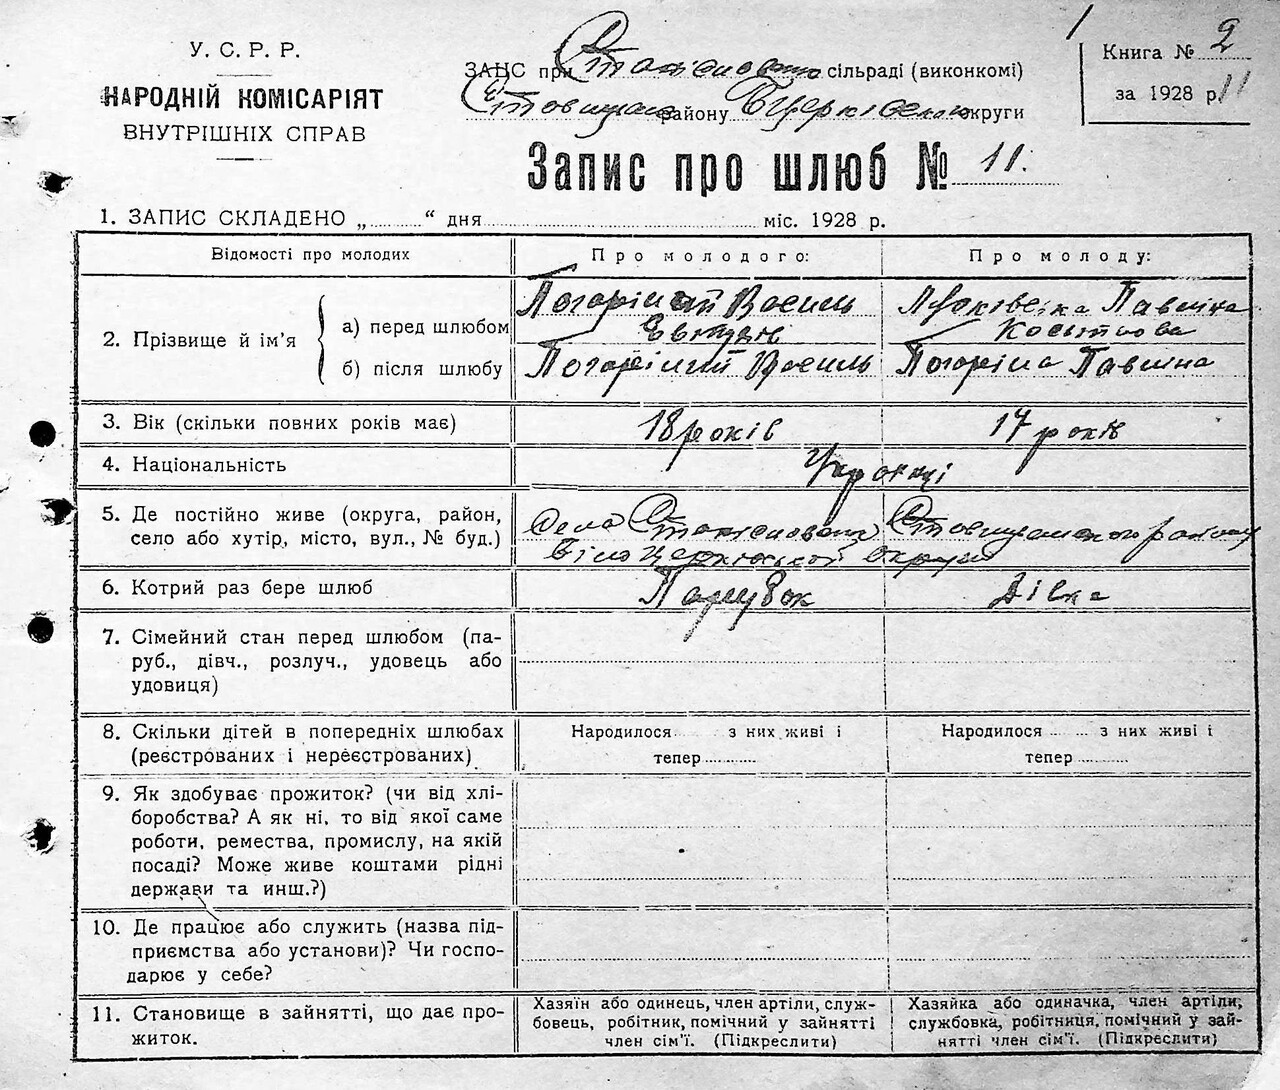 У. С. Р. Р.
НАРОДНІЙ КОМІСАРІЯТ
ВНУТРІШНІХ СПРАВ
ЗАГС при сільраді (виконкомі)
району округи
Книга № 2
за 1928 р. 11
Запис про шлюб № 11.
1. ЗАПИС СКЛАДЕНО „ “ дня міс. 1928 р.
Відомості про молодих
Про молодого:
Про молоду:
2. Прізвище й ім’я
а) перед шлюбом
Погорілий Василь
Павліна
Костьова
б) після шлюбу
Погорілий Василь
Погоріла Павліна
3. Вік (скільки повних років має)
18 років
17 років
4. Національність
Українці
5. Де постійно живе (округа, район,
село або хутір, місто, вул., № буд.)
Село району
Білоцерківської округи
6. Котрий раз бере шлюб
Парубок
Дівка
7. Сімейний стан перед шлюбом (па-
руб., дівч., розлуч., удовець або
удовиця)
8. Скільки дітей в попередніх шлюбах
(реєстрованих і нереєстрованих)
Народилося з них живі і
тепер
Народилося з них живі і
тепер
9. Як здобуває прожиток? (чи від хлі-
боробства? А як ні, то від якої саме
роботи, ремества, промислу, на якій
посаді? Може живе коштами рідні
держави та инш.?)
10. Де працює або служить (назва під-
приємства або установи)? Чи госпо-
дарює у себе?
11. Становище в зайнятті, що дає про-
житок.
Хазяїн або одинець, член артіли, служ-
бовець, робітник, помічний у зайнятті
член сім’ї. (Підкреслити)
Хазяйка або одиначка, член артіли,
службовка, робітниця, помічний у зай-
нятті член сім’ї. (Підкреслити)